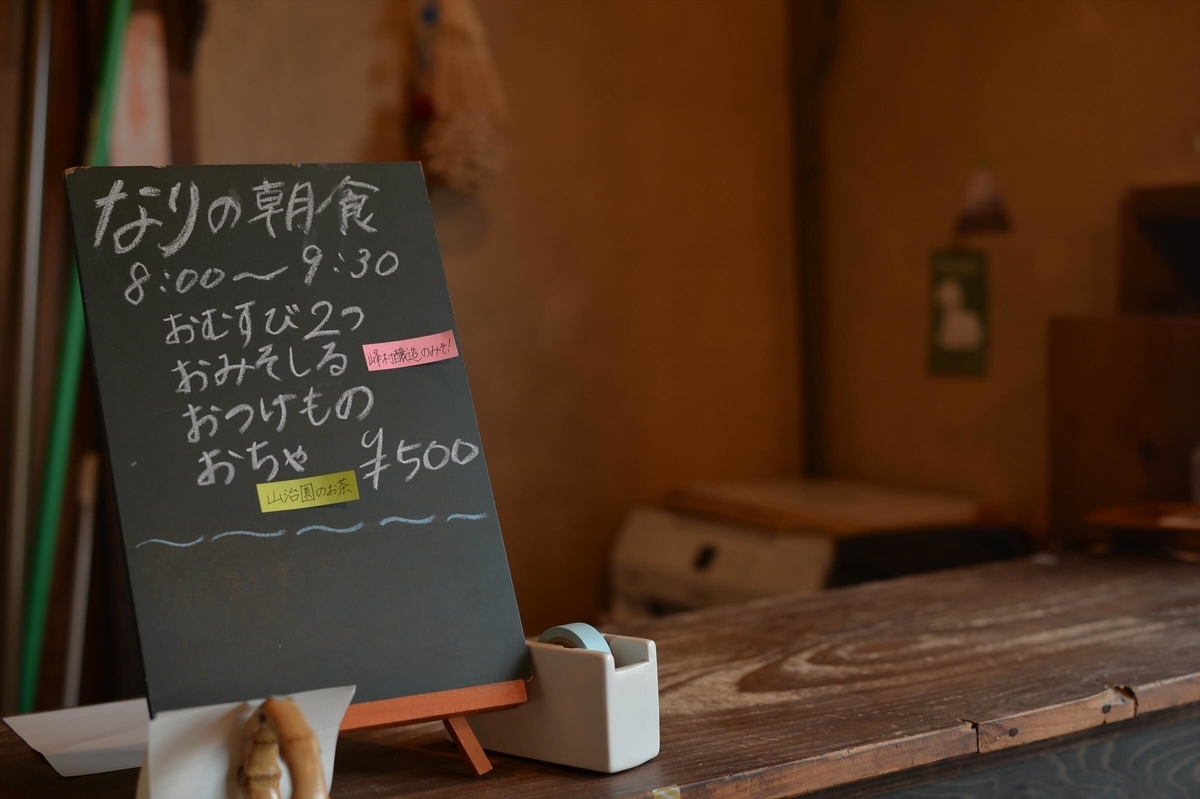 なりの朝食
8:00〜9:30
おむすび2つ
おみそしる
峰村醸造のみそ!
おつけもの
おちゃ ¥500
山治園のお茶